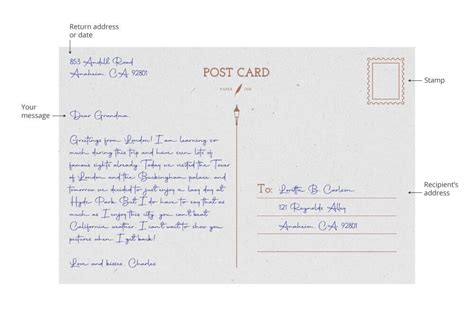 Return address
or date
853 Andell Road
Anaheim CA 92801
POST CARD
PAPER INK
Stamp
Your
message
Dear Grandma,
Greetings from London! I am learning so
much during this trip and have seen lots of
famous sights already. Today we visited the Tower
of London and the Buckingham palace and
tomorrow we decided to just enjoy a lazy day at
Hyde Park. But I do have to say that as
much as I enjoy this city you can't beat
California weather. I can't wait to show you
pictures when I get back!
Love and kisses, Charles
To: Loretta B.
121 Reynolds Alley
Anaheim CA 92801
Recipient's
address